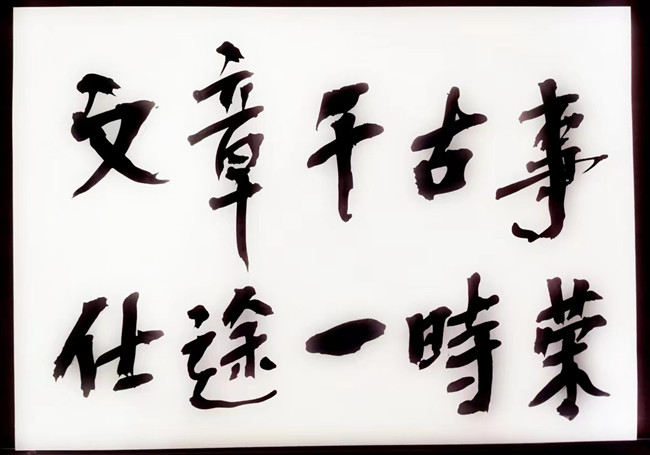 文章千古事
仕途一時荣